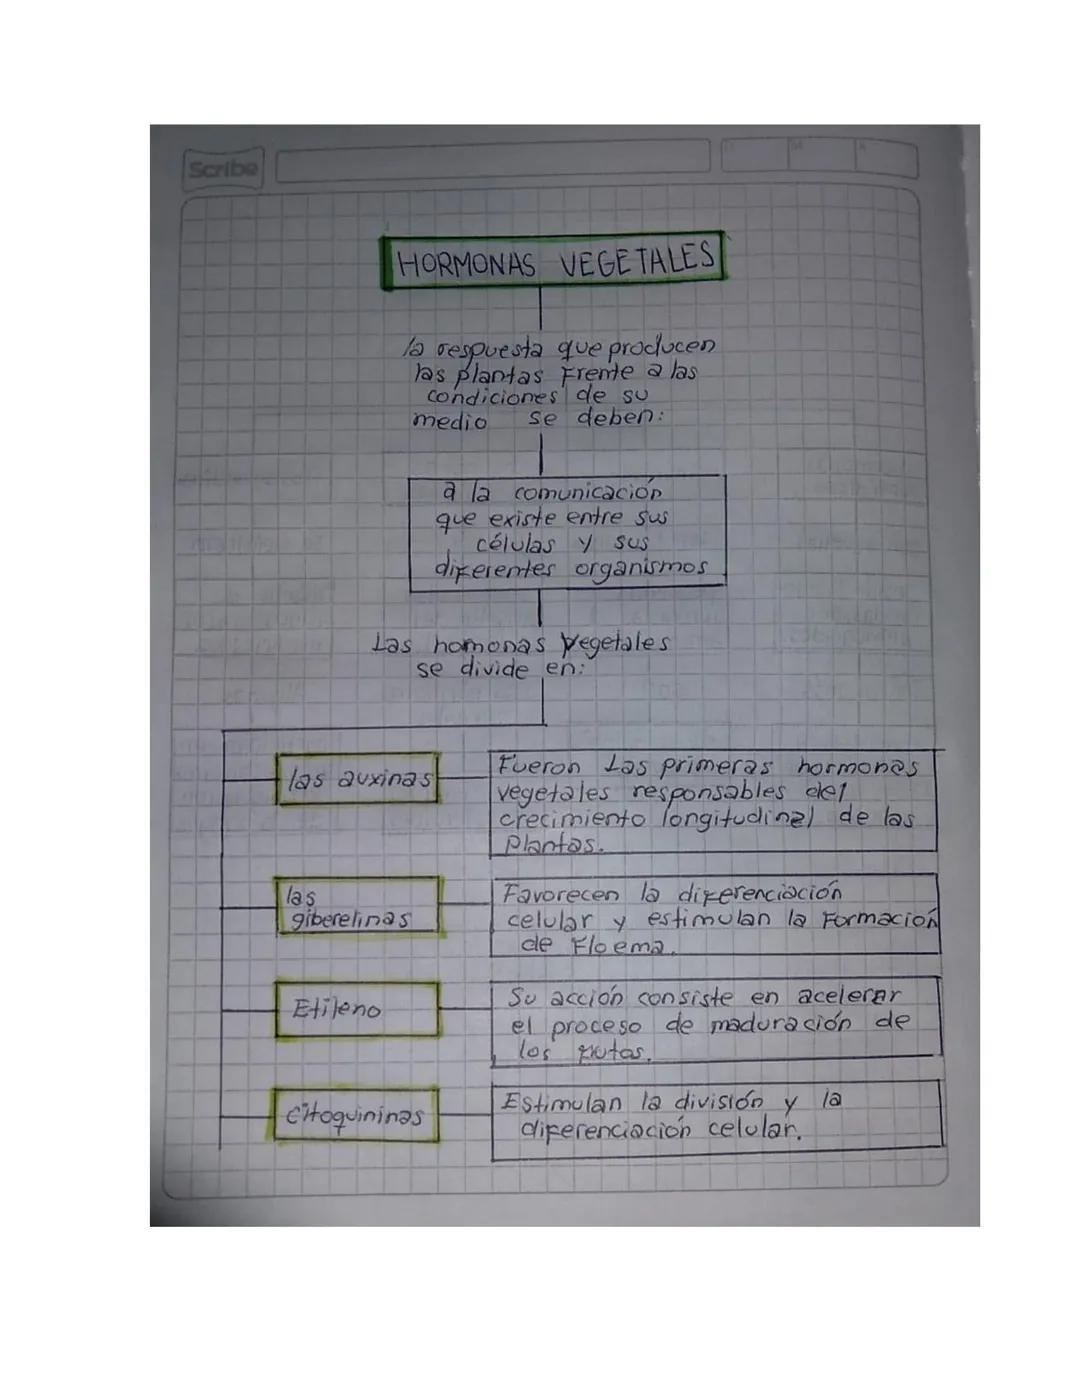 Scribe
HORMONAS VEGETALES
la respuesta que producen
las plantas frente a las
condiciones de su
medio se deben:
a la comunicación
que existe entre sus
células y sus
diferentes organismos
Las homonas vegetales
se divide en:
las auxinas
Fueron Las primeras hormonas
vegetales responsables del
crecimiento longitudinal de las
plantas.
las
giberelinas
Favorecen la diferenciación
celular y estimulan la Formación
de Floema.
Etileno
Su acción consiste en acelerar
el proceso de maduración de
los frutos.
Citoquininas
Estimulan la división y la
diferenciación celular.